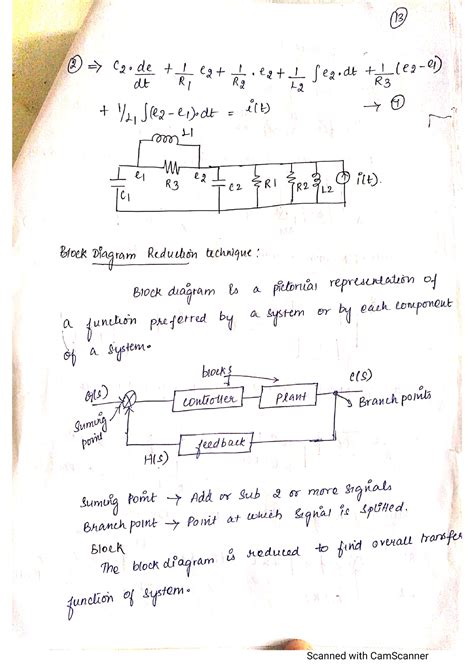 13
② ⇒ C2. de/dt + 1/R1 e2 + 1/R2 . e2 + 1/L2 ∫e2.dt + 1/R3 (e2 - e1)
+ 1/L1 ∫(e2 - e1).dt = i(t) → ④
L1
e1 R3 e2 C2 R1 R2 L2 i(t).
C1
Block Diagram Reduction technique :
Block diagram is a pictorial representation of
a function preferred by a system or by each component
of a system.
blocks
C(s)
G(s) controller Plant Branch points
Suming point
feedback
H(s)
Suming Point → Add or Sub 2 or more signals
Branch point → Point at which signal is splitted.
Block
The block diagram is reduced to find overall transfer
function of system.
Scanned with CamScanner